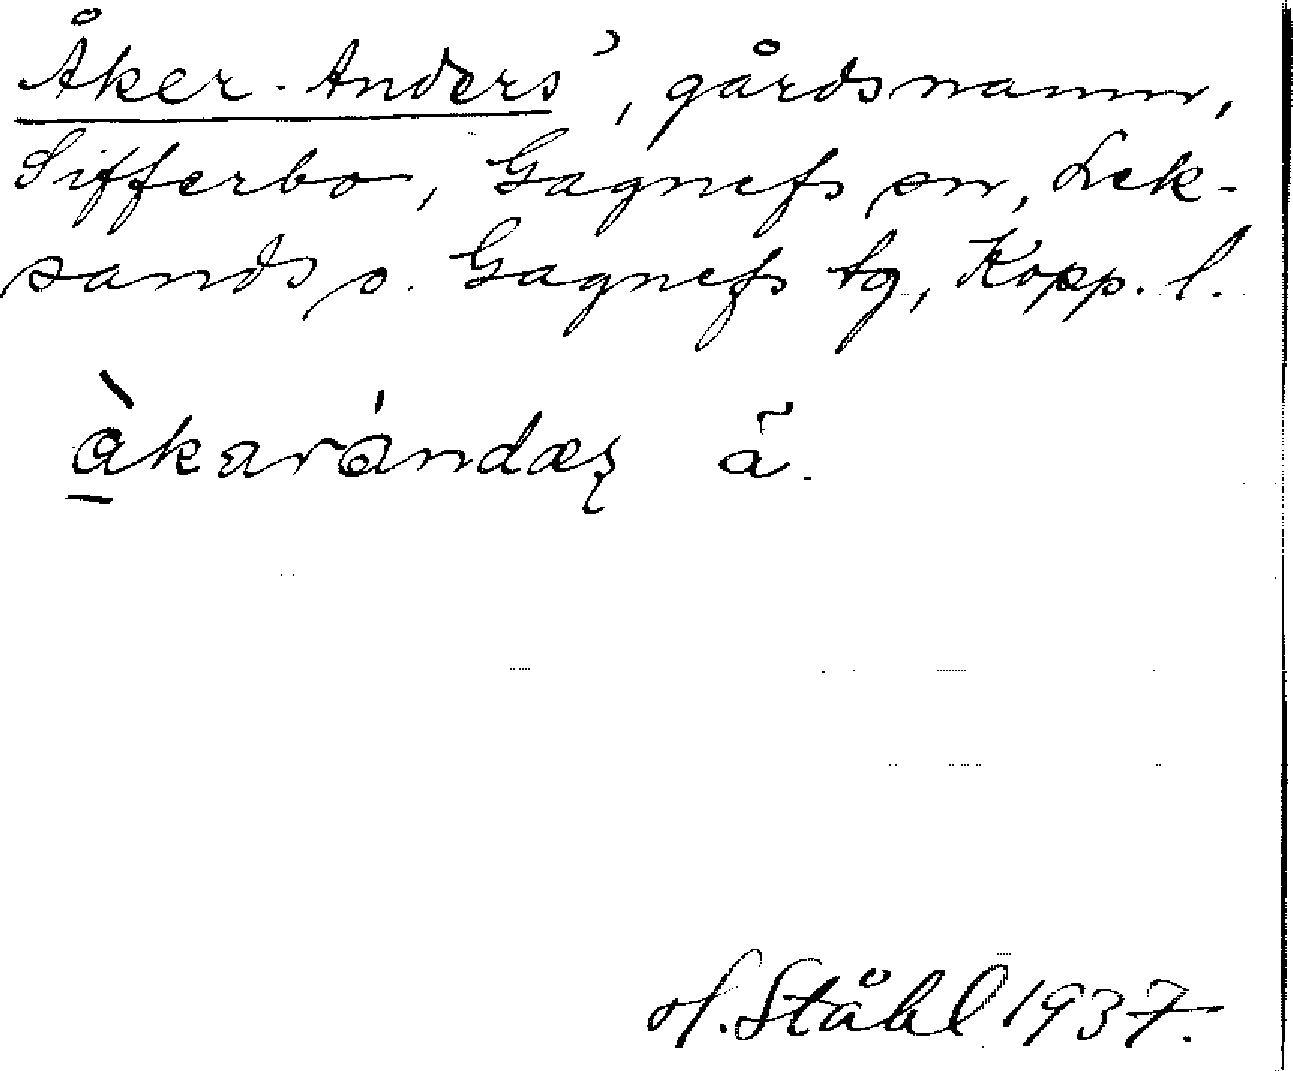 Åker-Anders', gårdsnamn,
Sifferbo, Gagnefs sn, Lek-
sands o. Gagnefs tg, Kopp. l.
å̀karándæʂ ã.
H. Ståhl 1937.